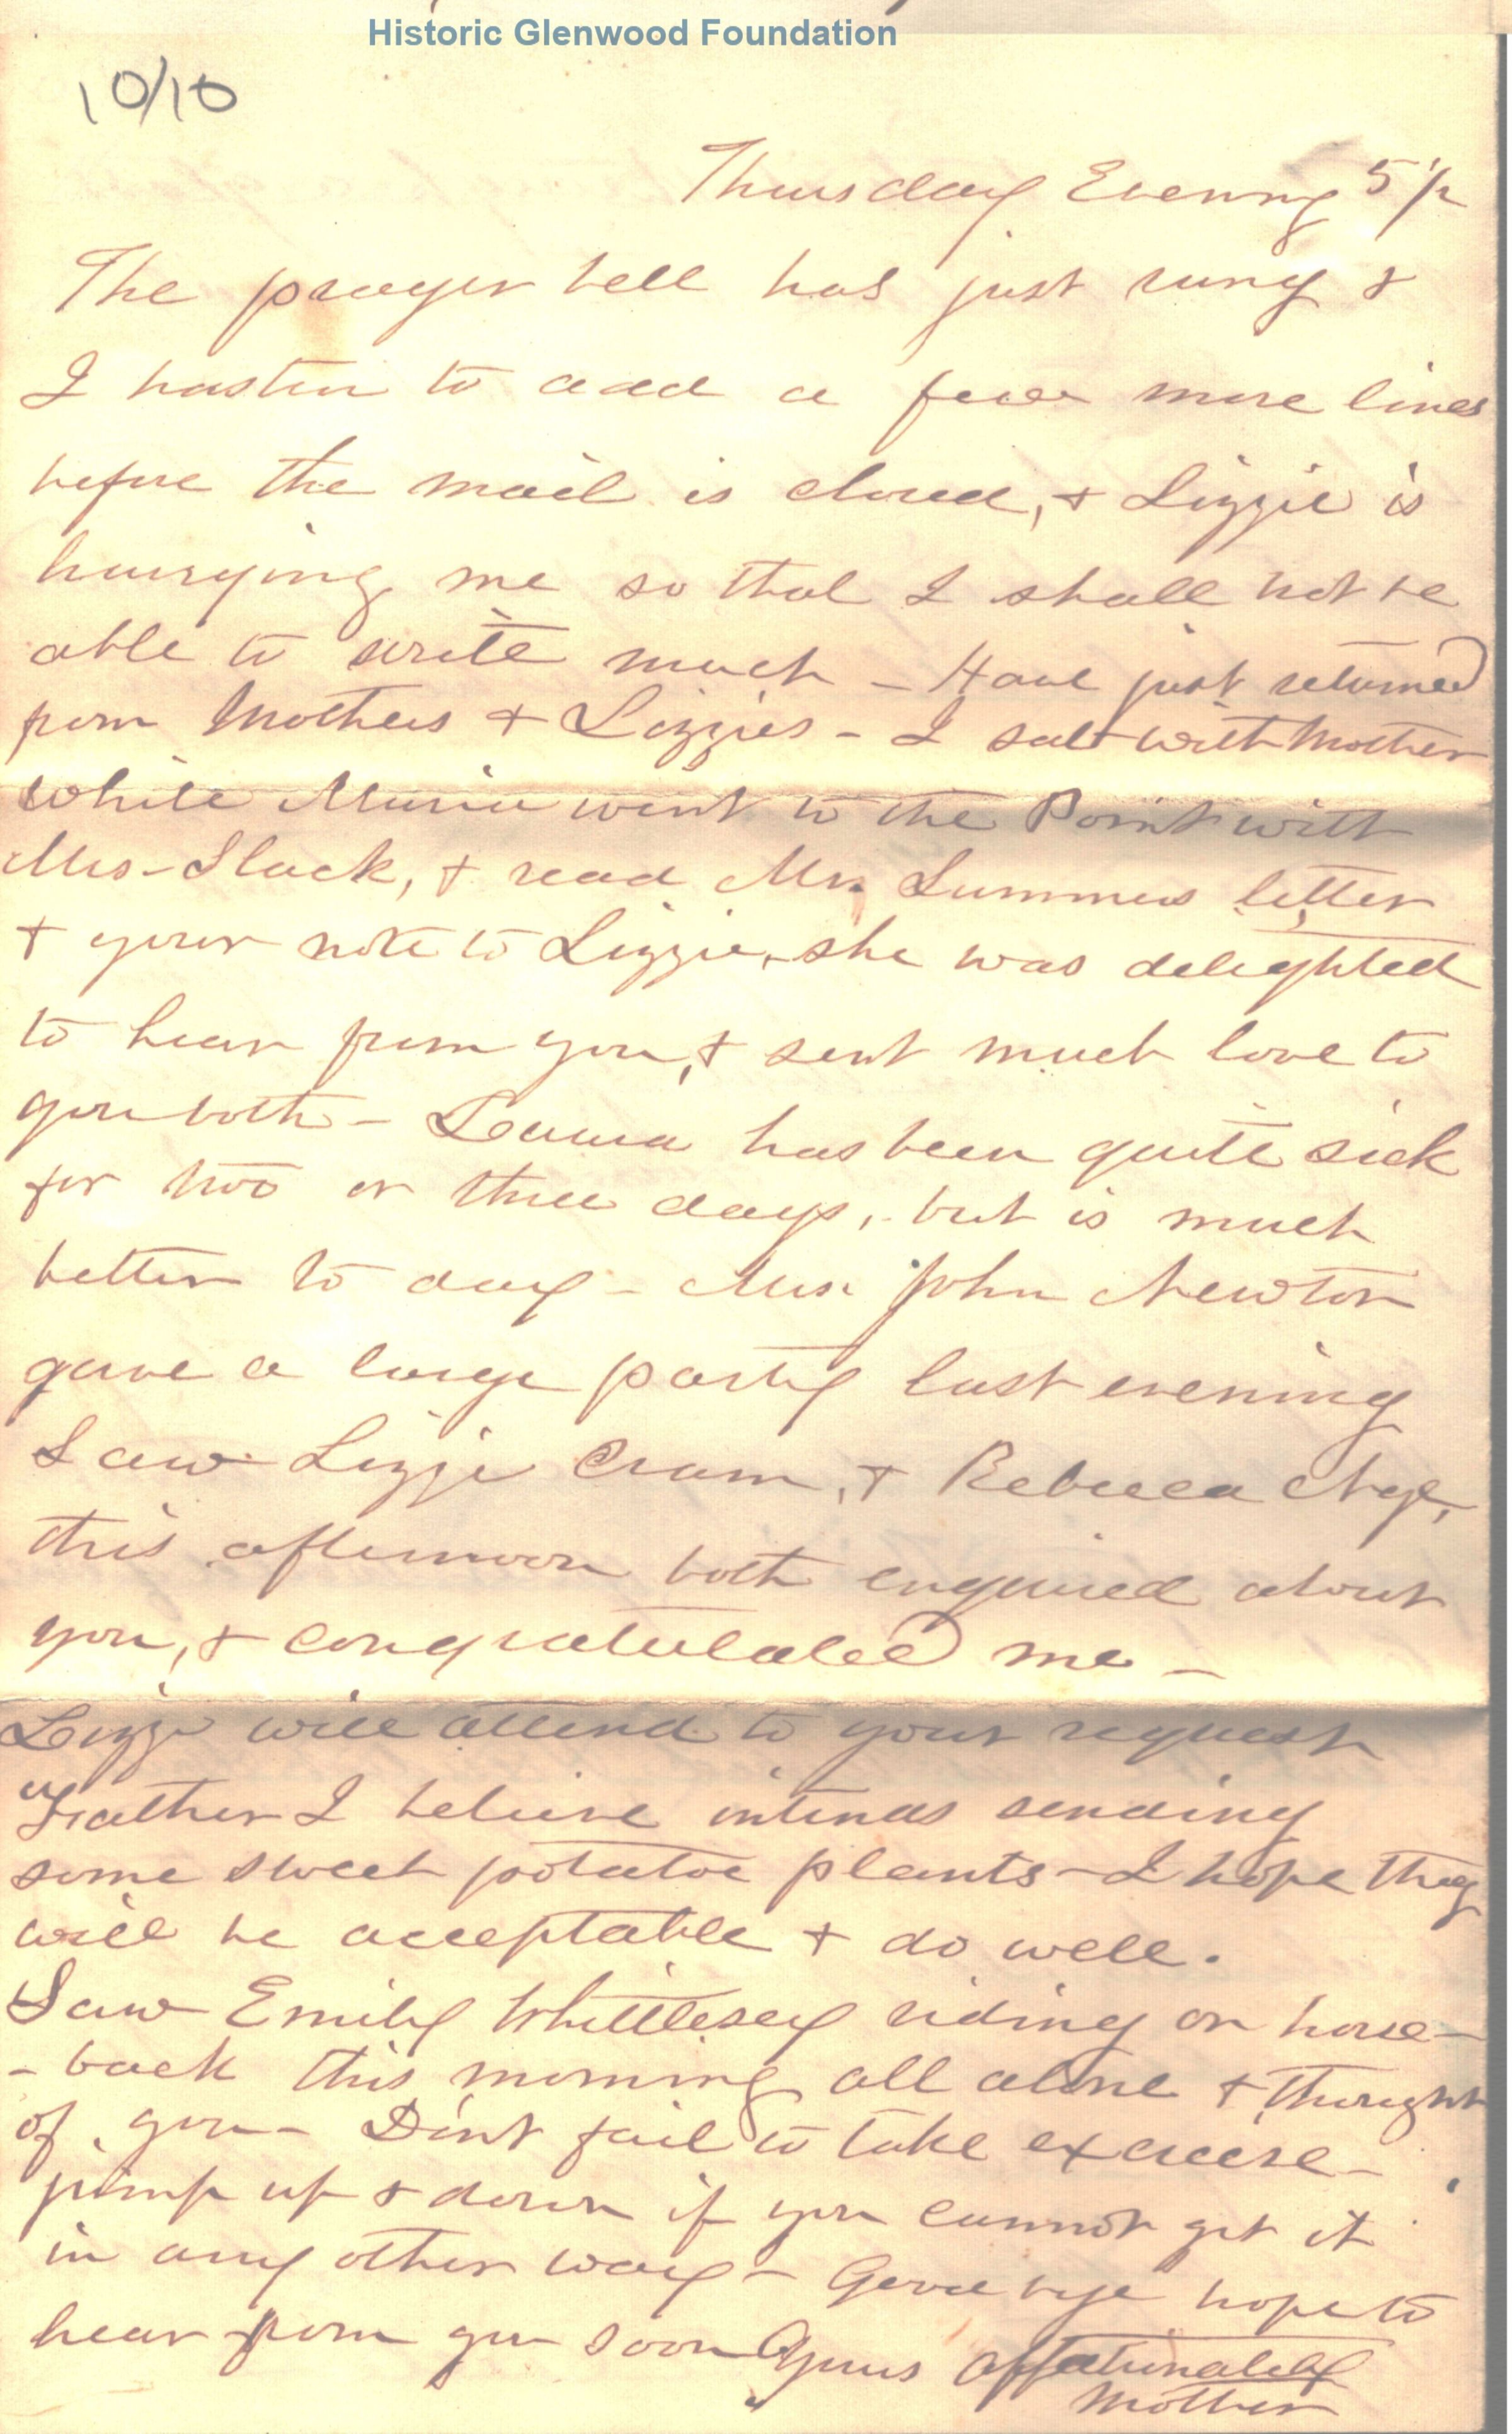 Historic Glenwood Foundation
10/10
Thursday Evening 5 1/2
The prayer bell has just rung &
I hasten to add a few more lines
before the mail is closed, & Lizzie is
hurrying me so that I shall not be
able to write much - Have just returned
from Mothers & Lizzies - I sat with Mother
while Maria went to the Point with
Mrs - Slack, & read Mr. Lummus letter
& your note to Lizzie, she was delighted
to hear from you, & sent much love to
you both - has been quite sick
for two or three days, but is much
better to day - Mrs. John Newton
gave a large party last evening
Saw Lizzie Cram, & Rebecca Nye,
this afternoon both enquired about
you, & congratulated me -
Lizzie will attend to your request
"Father I believe intends sending
some sweet potatoe plants - I hope they
will be acceptable & do well.
Saw Emily Whittlesey riding on horse-
- back this morning all alone & thought
of you - Dont fail to take exercise -
jump up & down if you cannot get it
in any other way - Good bye hope to
hear from you soon Yours affectionately
Mother